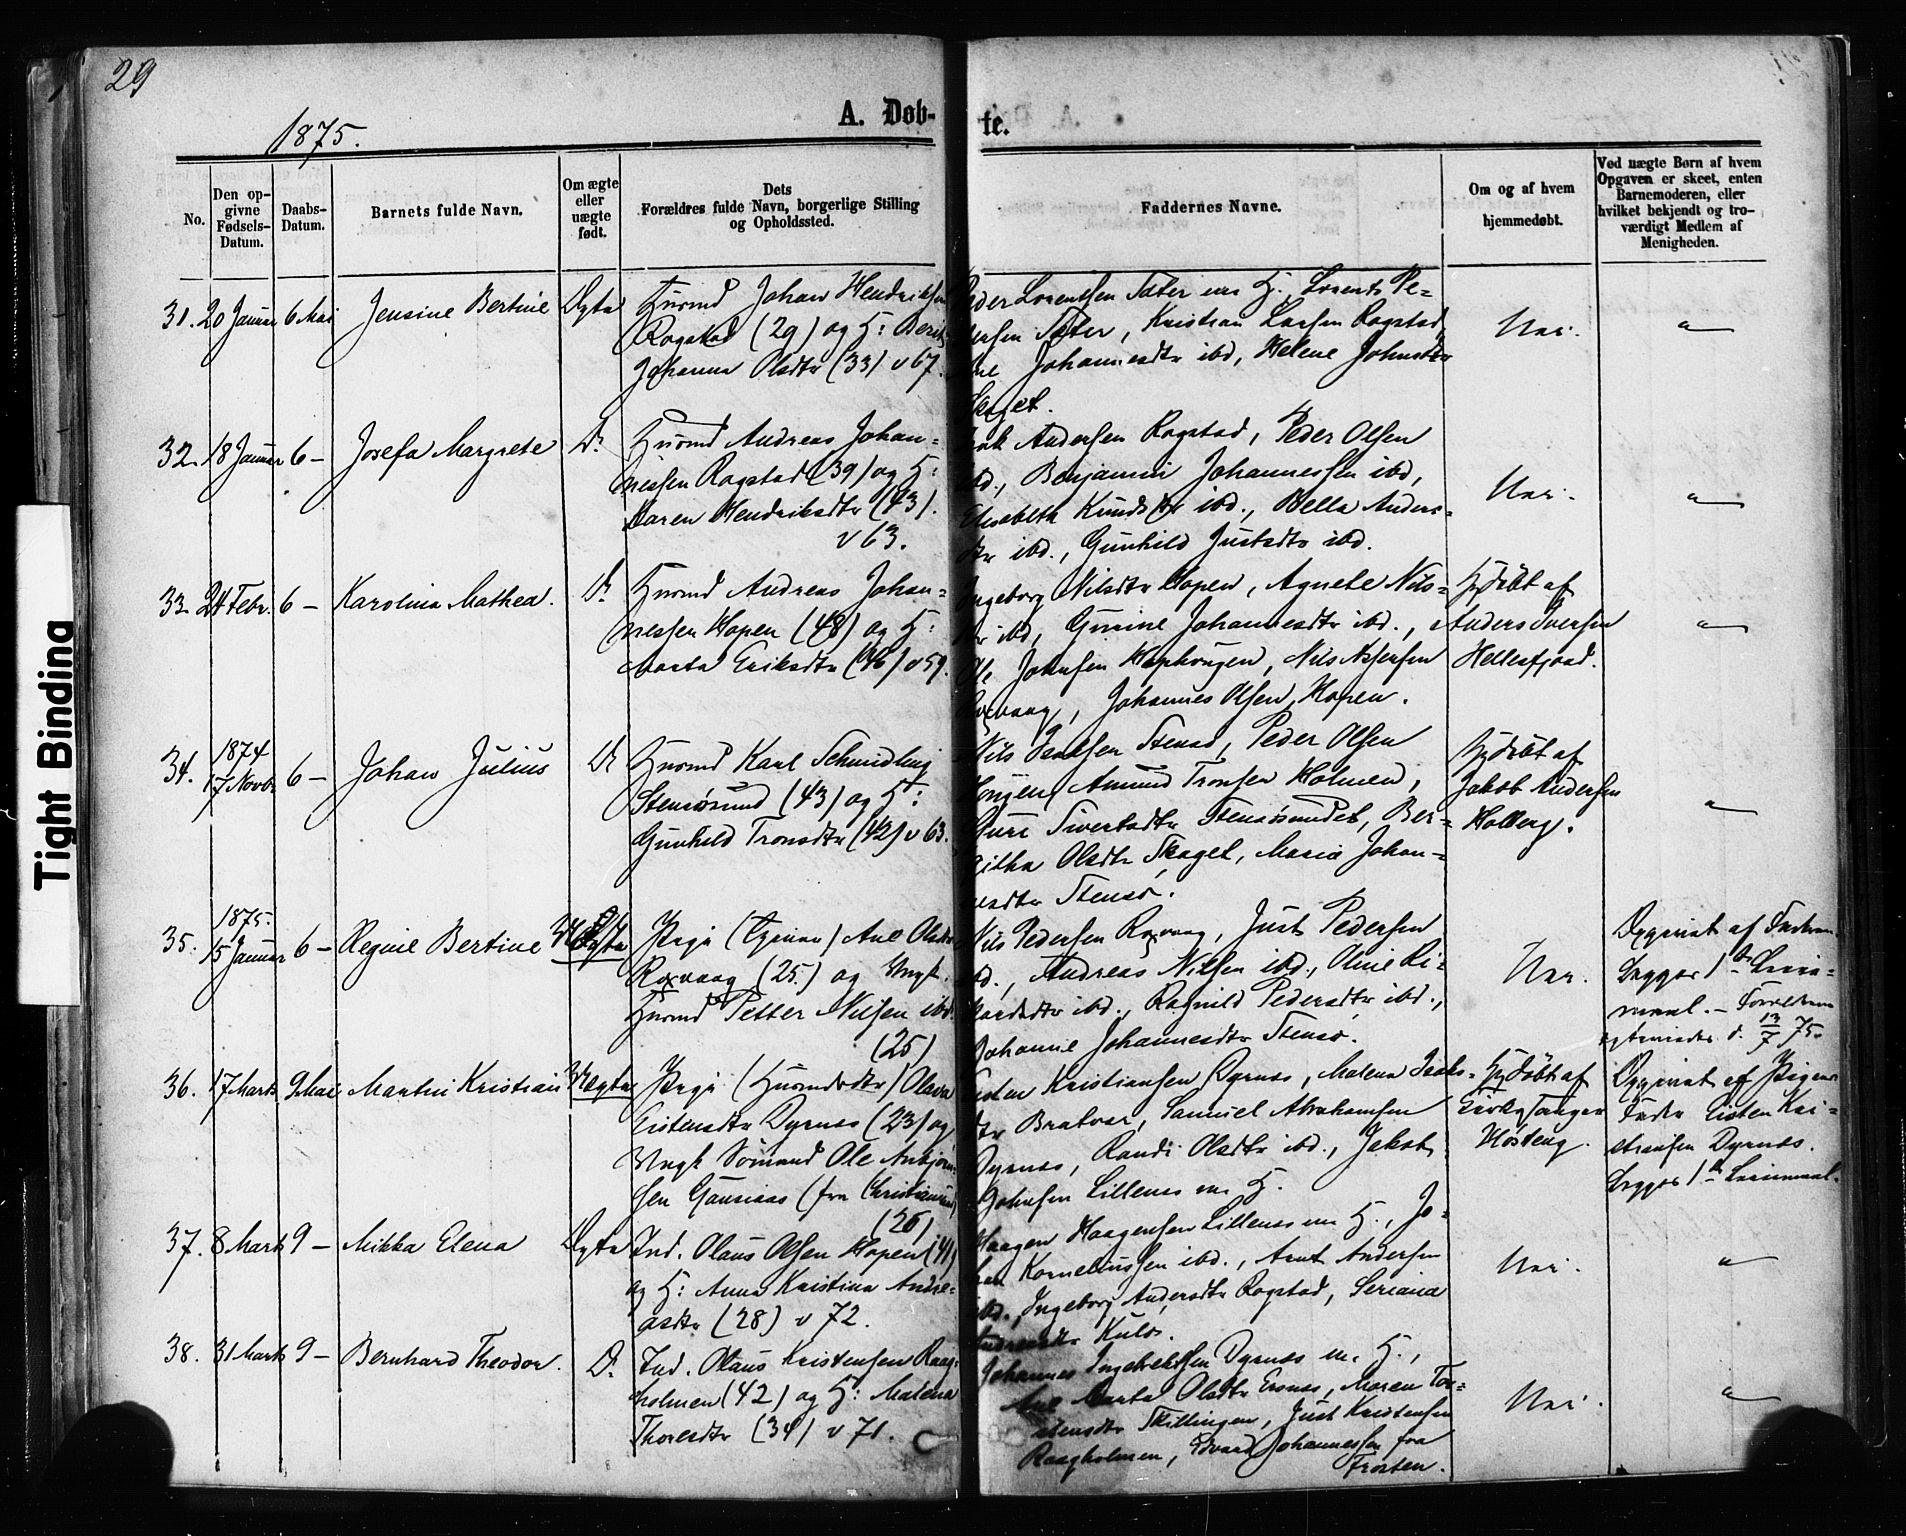 29
1875.
A. Døb-
te.
No.
Den op-
givne
Fødsels-
Datum.
Daabs-
Datum.
Barnets fulde Navn.
Om ægte
eller
uægte
født.
Dets
Forældres fulde Navn, borgerlige Stilling
og Opholdssted.
Faddernes Navne.
Om og af hvem
hjemmedøbt.
Ved uægte Børn af hvem
Opgaven er skeet, enten
Barnemoderen, eller
hvilket bekjendt og tro-
værdigt Medlem af
Menigheden.
31. 20 Januar 6 Mai Jensine Bertine Ægte
Husmd Johan Hendriksen
Rogstad (29) og H: Berit
Johanna Olsdtr (33) v 67.
Peder Lorentsen Sæter m. H. Lorents Pe-
dersen Sæter, Kristian Larsen Rogstad,
Ane Johannesdtr ibd, Helene Johnsdtr
Skaget.
Nei.
"
32. 18 Januar 6 — Josefa Margrete Do
Husmd Andreas Johan-
nessen Rogstad (39) og H:
Maren Hendriksdtr (43).
v 63.
Isak Andersen Rogstad, Peder Olsen
ibd., Benjamin Johannessen ibd,
Elisabeth Knudsdtr ibd., Pella Anders-
dtr ibd., Gunhild Justsdtr ibd.
Nei.
"
33. 24 Febr. 6 — Karolina Mathea. Do
Husmd Andreas Johan-
nessen Hopen (48) og H:
Marta Eriksdtr (46) v 59.
Ingeborg Nilsdtr Hopen, Agnete Nils-
dtr ibd, Gurine Johannesdtr ibd.,
Ole Johnsen Hophougen, Nils
Roxvaag, Johannes Olsen Hopen.
Hjdøbt af
Anders Iversen
Hellesfjord.
"
34. 1874
17 Novbr 6 — Johan Julius Do
Husmd Karl Schmidling
Stensøsund (43) og H:
Gunhild Tronsdtr (42) v 63.
Nils Stensø, Peder Olsen
Hougen, Amund Tronsen Holmen,
Guri Sivertsdtr Stensøsundet, Ber-
githa Olsdtr Skaget, Maria Johan-
nesdtr Stensø.
Hjdøbt af
Jakob Andersen
Hallberg.
"
35. 1875.
15 Januar 6 — Regine Bertine Uægte
Pige Ane Olsdtr
Roxvaag (25.) og Ungk.
Husmd Petter Nilsen ibd.
(25)
Nils Pedersen Roxvaag, Just Pedersen
ibd., Andreas Nilsen ibd., Oline Ri-
kardsdtr ibd., Ragnild Pedersdtr ibd.,
Johanne Johannesdtr Stensø.
Nei.
Opgivet af Faderen.
Begges 1ste Leier-
maal. — Forældrene
d. 13/7 75.
36. 17 Marts 9 Mai Martin Kristian Uægte
Pige (Husmdsdtr) Olava
Eistensdtr Dyrnæs (23) og
Ungk Sømand Ole Anbjørn-
sen (fra Christiansund)
(26)
Eisten Kristiansen Dyrnæs, Malena Isaks-
dtr Bratvær, Samuel Abrahamsen
Dyrnæs, Randi Olsdtr ibd., Jakob
Johnsen Lillenæs m. H.
Hjdøbt af
Høsteng.
Opgivet af Pigens
Fader Eisten Kri-
stiansen Dyrnæs.
Begges 1ste Leiermaal.
37. 8 Marts 9 — Mikka Elena Ægte
Ind. Olaus Olsen Hopen (41)
og H: Anna Kristina Andre-
asdtr (28) v 72.
Haagen Haagensen Lillenæs m H., Jo-
han Korneliussen ibd., Arnt Andersen
ibd., Ingeborg Andersdtr Rogstad, Seriana
Andreasdtr Kulø.
Nei.
"
38. 31 Marts 9 — Bernhard Theodor. Do
Ind. Olaus Kristensen Raag-
holmen (42) og H: Malena
Thoresdtr (34) v 71.
Johannes Ingebrektsen Dyrnæs m. H.,
Ane Marta Olsdtr Ersnæs, Maren Tor-
stensdtr Skillingen, Just Kristensen
Raagholmen, Edvard Johannessen fra
Frosten.
Nei.
"
Tight Binding